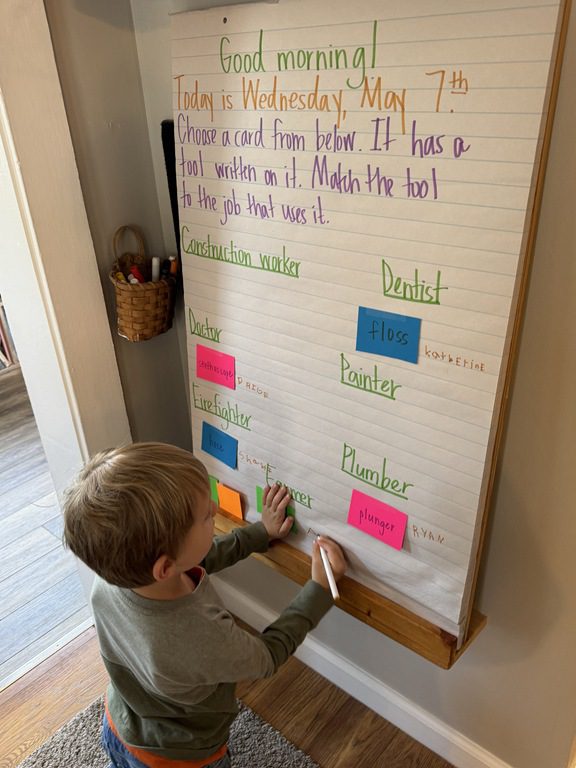 Good morning!
Today is Wednesday, May 7th.
Choose a card from below. It has a
tool written on it. Match the tool
to the job that uses it.
Construction worker
Dentist
floss
KATHERINE
Doctor
stethoscope
PAIGE
Painter
Firefighter
hose
Shane
Farmer
Plumber
plunger
RYAN